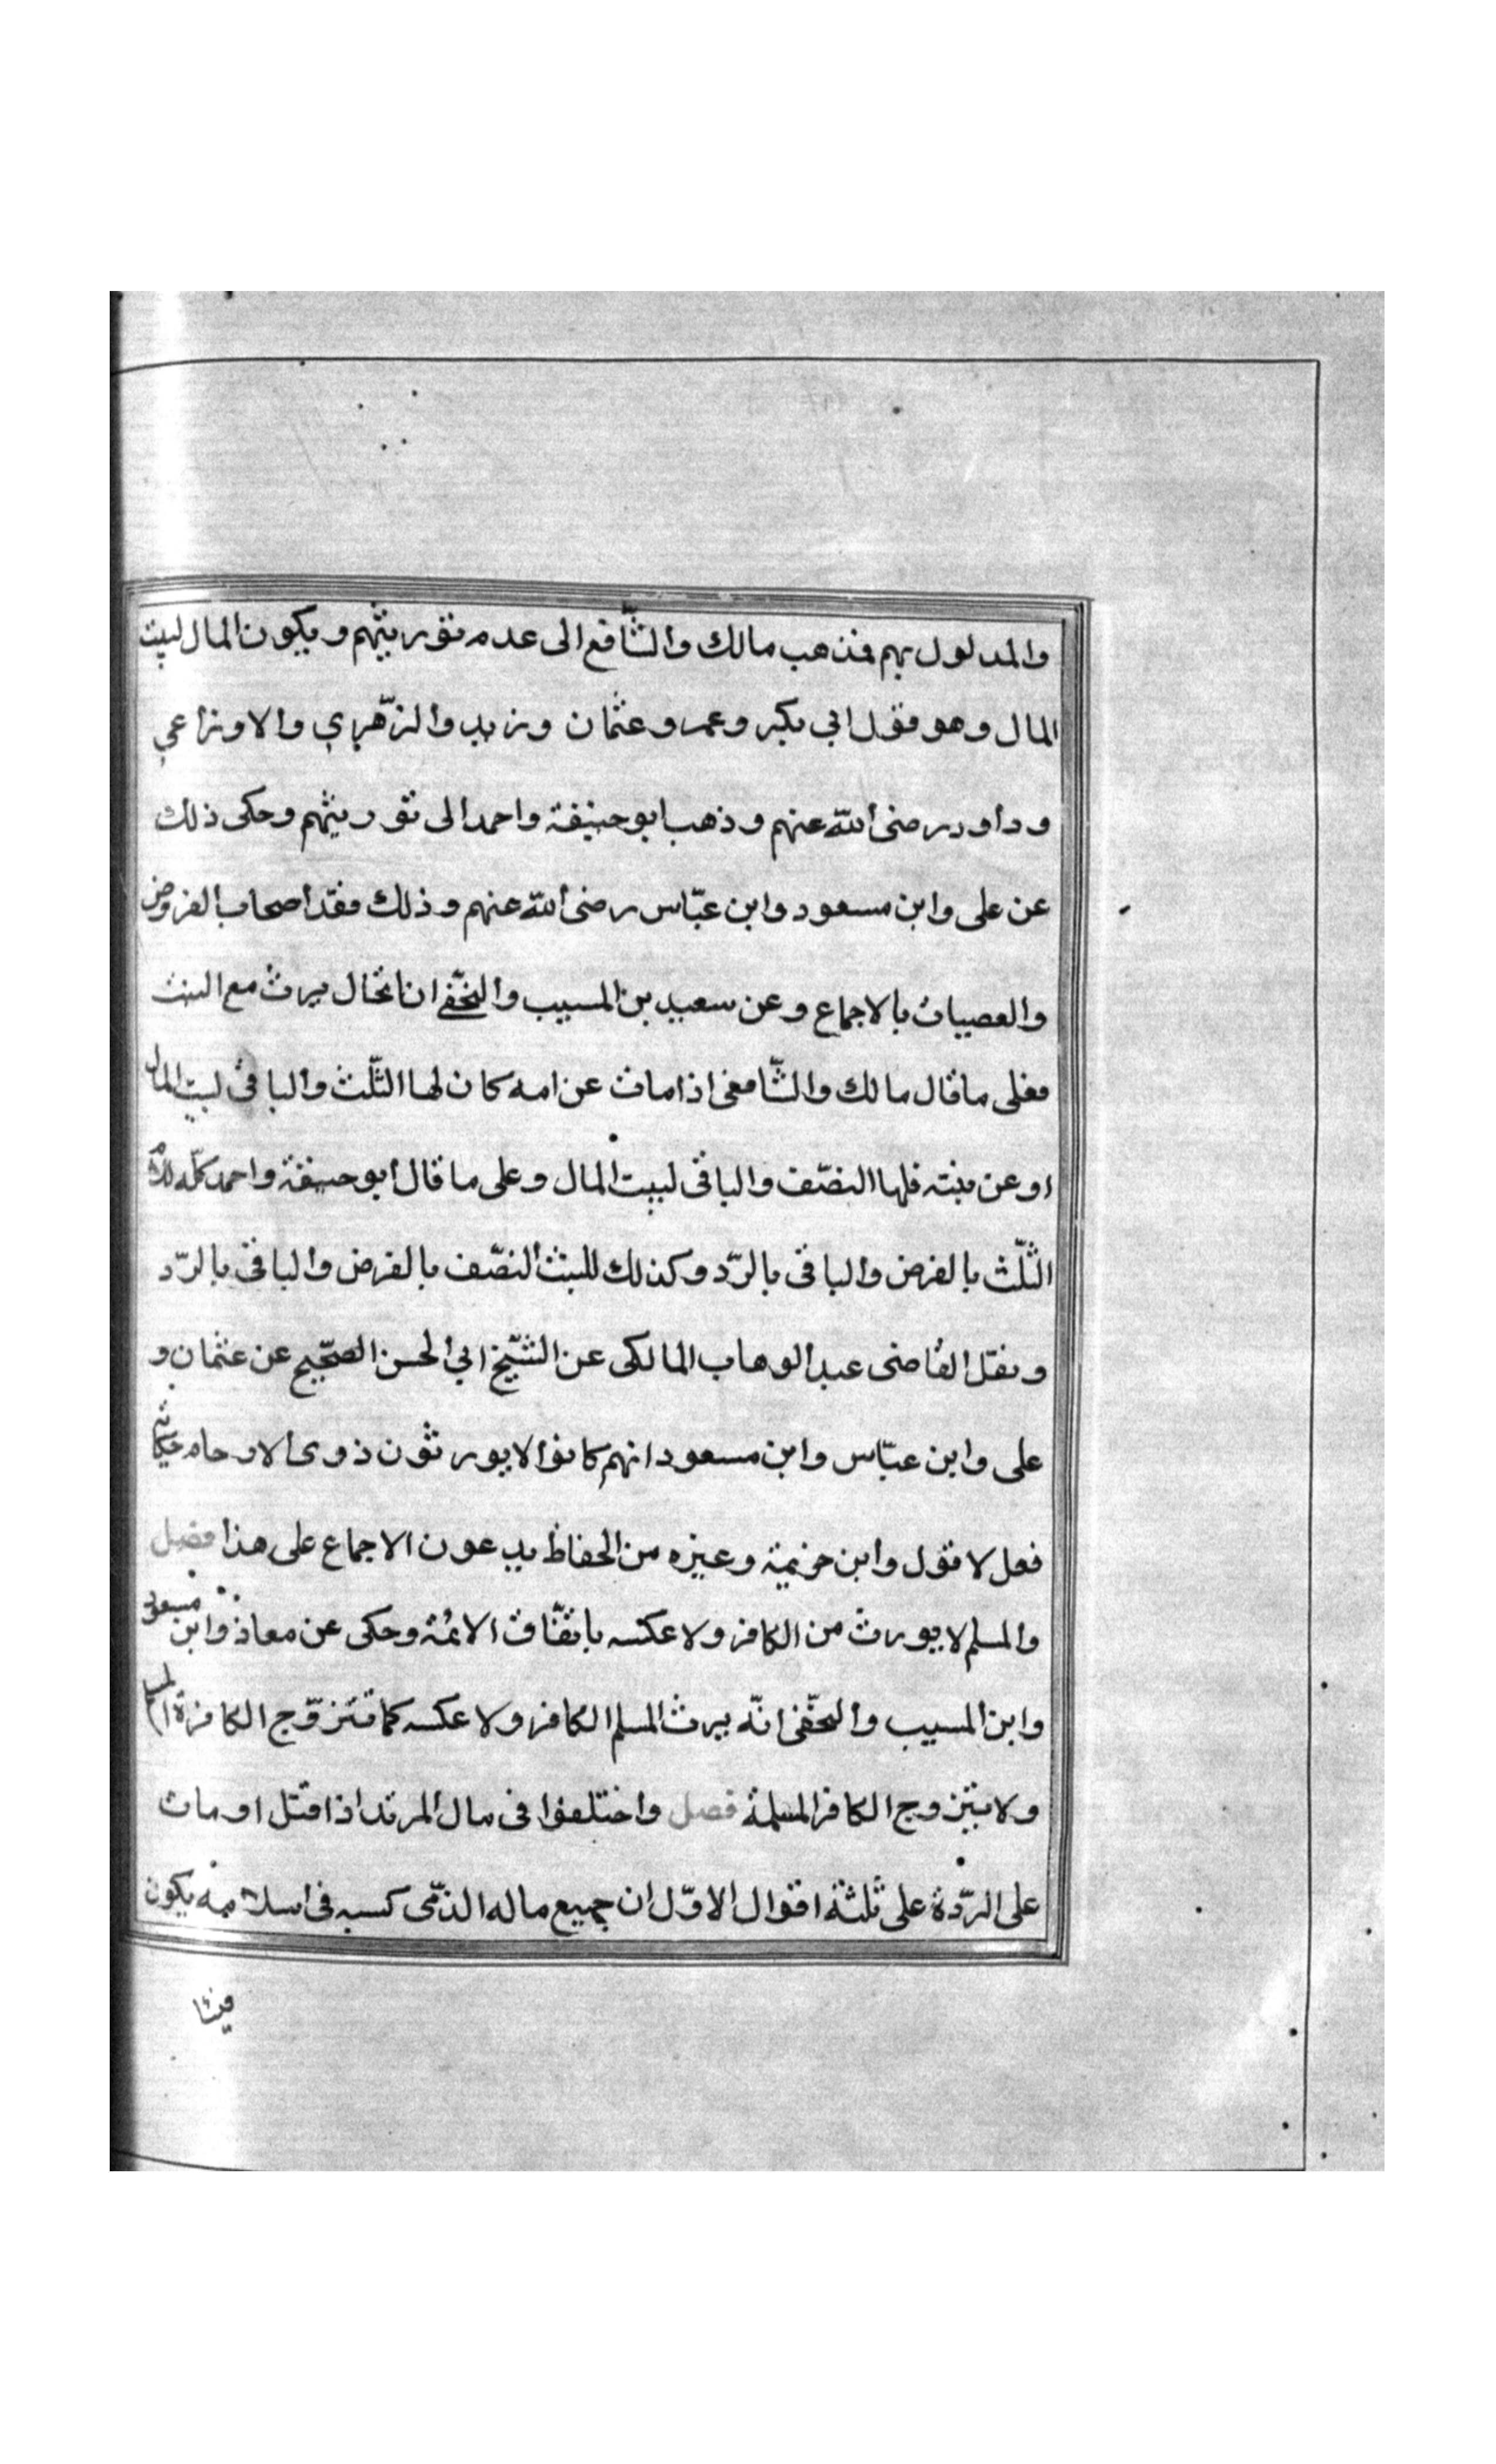 والمدلول بهم فذهب مالك والشّافع الى عدم توريثهم ويكون المال لبيت
المال وهو قول ابى بكر وعمر وعثمان وزيد والزّهري والاوزاعي
وداود رضى الله عنهم وذهب ابو حنيفة واحمد الى توريثهم وحكى ذلك
عن على وابن مسعود وابن عبّاس رضى الله عنهم وذلك فقد اصحاب الفروض
والعصبات بالاجماع وعن سعيد بن المسيب والنخّفے ان الخال يرث مع البنت
فعلى ما قال مالك والشّافعى اذا مات عن امه كان لها الثّلث والباقى لبيت المال
او عن بنته فلها النصّف والباقى لبيت المال وعلى ما قال ابو حنيفة واحمد كلّه للام
الثّلث بالفرض والباقى بالرّد وكذلك للبنت النصّف بالفرض والباقى بالرّد
ونقل القاضى عبد الوهاب المالكى عن الشّيخ ابى الحسن الصحّيح عن عثمان و
على وابن عبّاس وابن مسعود انهم كانوا لا يورثون ذوى الارحام حكاية
فعل لا قول وابن خزيمة وغيره من الحفاظ يدعون الاجماع على هذا فصل
والمسلم لا يورث من الكافر ولا عكسه باتفّاق الائمة وحكى عن معاذ وابن مسعود
وابن المسيب والنخّفى انّه يرث المسلم الكافر ولا عكسه كما تتزوّج الكافرة المسلم
ولا يتزوج الكافر المسلمة فصل واختلفوا فى مال المرتد اذا قتل او مات
على الردّة على ثلثة اقوال الاوّل ان جميع ماله الذّى كسبه فى اسلامه يكون
فيئا